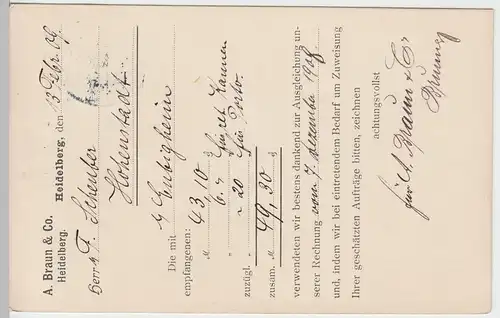 A. Braun & Co.
Heidelberg.
Heidelberg, den 13 Febr. 09.
Herrn F. Scheufer
Hohenstadt
Die mit
empfangenen: M 43,10
" 6.–
zuzügl. " –20 für Porto.
zusam. M 49,30
verwendeten wir bestens dankend zur Ausgleichung un-
serer Rechnung vom 7. Dezember 1908
und, indem wir bei eintretendem Bedarf um Zuweisung
Ihrer geschätzten Aufträge bitten, zeichnen
achtungsvollst
für A. Braun & Co